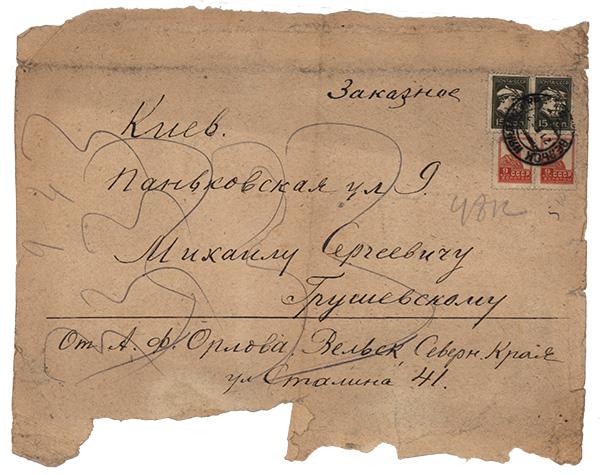 Заказное
Киев.
Паньковская ул 9.
Михаилу Сергеевичу
Грушевскому
От А. Ф. Орлова, Вельск, Северн. Края
ул Сталина 41.
15 15 КОП
СССР СССР